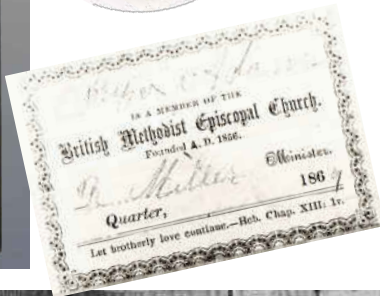 IS A MEMBER OF THE
British Methodist Episcopal Church.
Founded A. D. 1856.
Miller Minister.
Quarter, 186
Let brotherly love continue.—Heb. Chap. XIII: 1v.